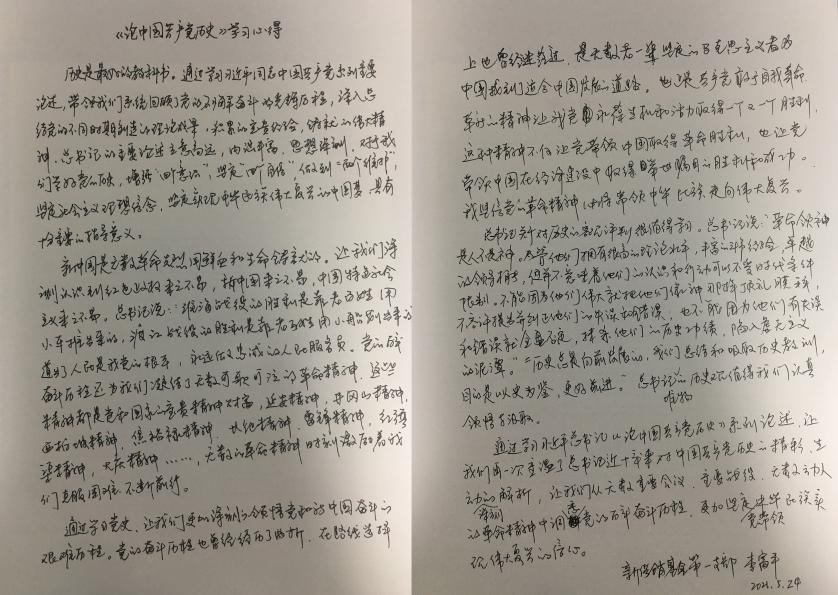 《论中国共产党历史》学习心得
历史是最好的教科书。通过学习习近平同志中国共产党系列重要
论述，带领我们系统回顾了党的不懈奋斗的光辉历程，深入总
结党的不同时期创造的理论成果，积累的宝贵经验，铸就的伟大精
神。总书记的重要论述立意高远，内涵丰富，思想深刻，对于我
们学好党的历史，增强“四个意识”，坚定“四个自信”做到“两个维护”，
坚定社会主义理想信念，坚定实现中华民族伟大复兴的中国梦，具有
十分重要的指导意义。
新中国是无数革命先烈用鲜血和生命铸就的。让我们深
刻认识到红色政权来之不易，新中国来之不易，中国特色社会
主义来之不易。总书记说：淮海战役的胜利是靠老百姓用
小车推出来的，渡江战役的胜利是靠老百姓用小船划出来的
道明了人民是我党的根本，永远做忠诚的人民服务员。党的历史
奋斗历程还为我们凝结了无数可歌可泣的革命精神，这些
精神都是党和国家的宝贵精神财富，延安精神，井冈山精神，
西柏坡精神，焦裕禄精神，抗疫精神，雷锋精神，红旗
渠精神，大庆精神……，无数的革命精神时刻激励着我
们克服困难，不断前行。
通过学习党史，让我们更加深刻的领悟党和新中国奋斗的
艰难历程。党的奋斗历程也曾经经历了曲折，在路线选择
上也曾经迷茫过，是无数老一辈坚定的马克思主义者为
中国找到了适合中国发展的道路。也正是共产党敢于自我革命
革新的精神让我党永葆生机和活力取得一个又一个胜利，
这种精神不仅让党带领中国取得革命胜利，也让党
带领中国在经济建设中取得举世瞩目的胜利和成功。
我坚信党的革命精神，必将带领中华民族走向伟大复兴。
总书记关于对历史的客观评判很值得学习。总书记说：“革命领袖
是人不是神。尽管他们拥有很高的理论水平，丰富的斗争经验，卓越
的领导才能，但并不意味着他们的认识和行动可以不受时代条件
限制。不能因为他们伟大就把他们像神那样顶礼膜拜，
不容许提出并纠正他们的失误和错误，也不能因为他们有失误
和错误就全盘否定，抹杀他们的历史功绩，陷入虚无主义
的泥潭。”“历史总是向前发展的，我们总结和吸取历史教训，
目的是以史为鉴，更好前进。”总书记的历史唯物观值得我们认真
领悟与汲取。
通过学习习近平总书记《论中国共产党历史》系列论述，让
我们再一次重温了总书记近十年来对中国共产党历史的精彩、生
动的解析，让我们从无数重要会议、重要战役、无数生动人
的革命精神中深刻洞悉党的百年奋斗历程，更加坚定中华民族党带领实
现伟大复兴的信心。
新供销基金第一支部 李富平
2021.5.24